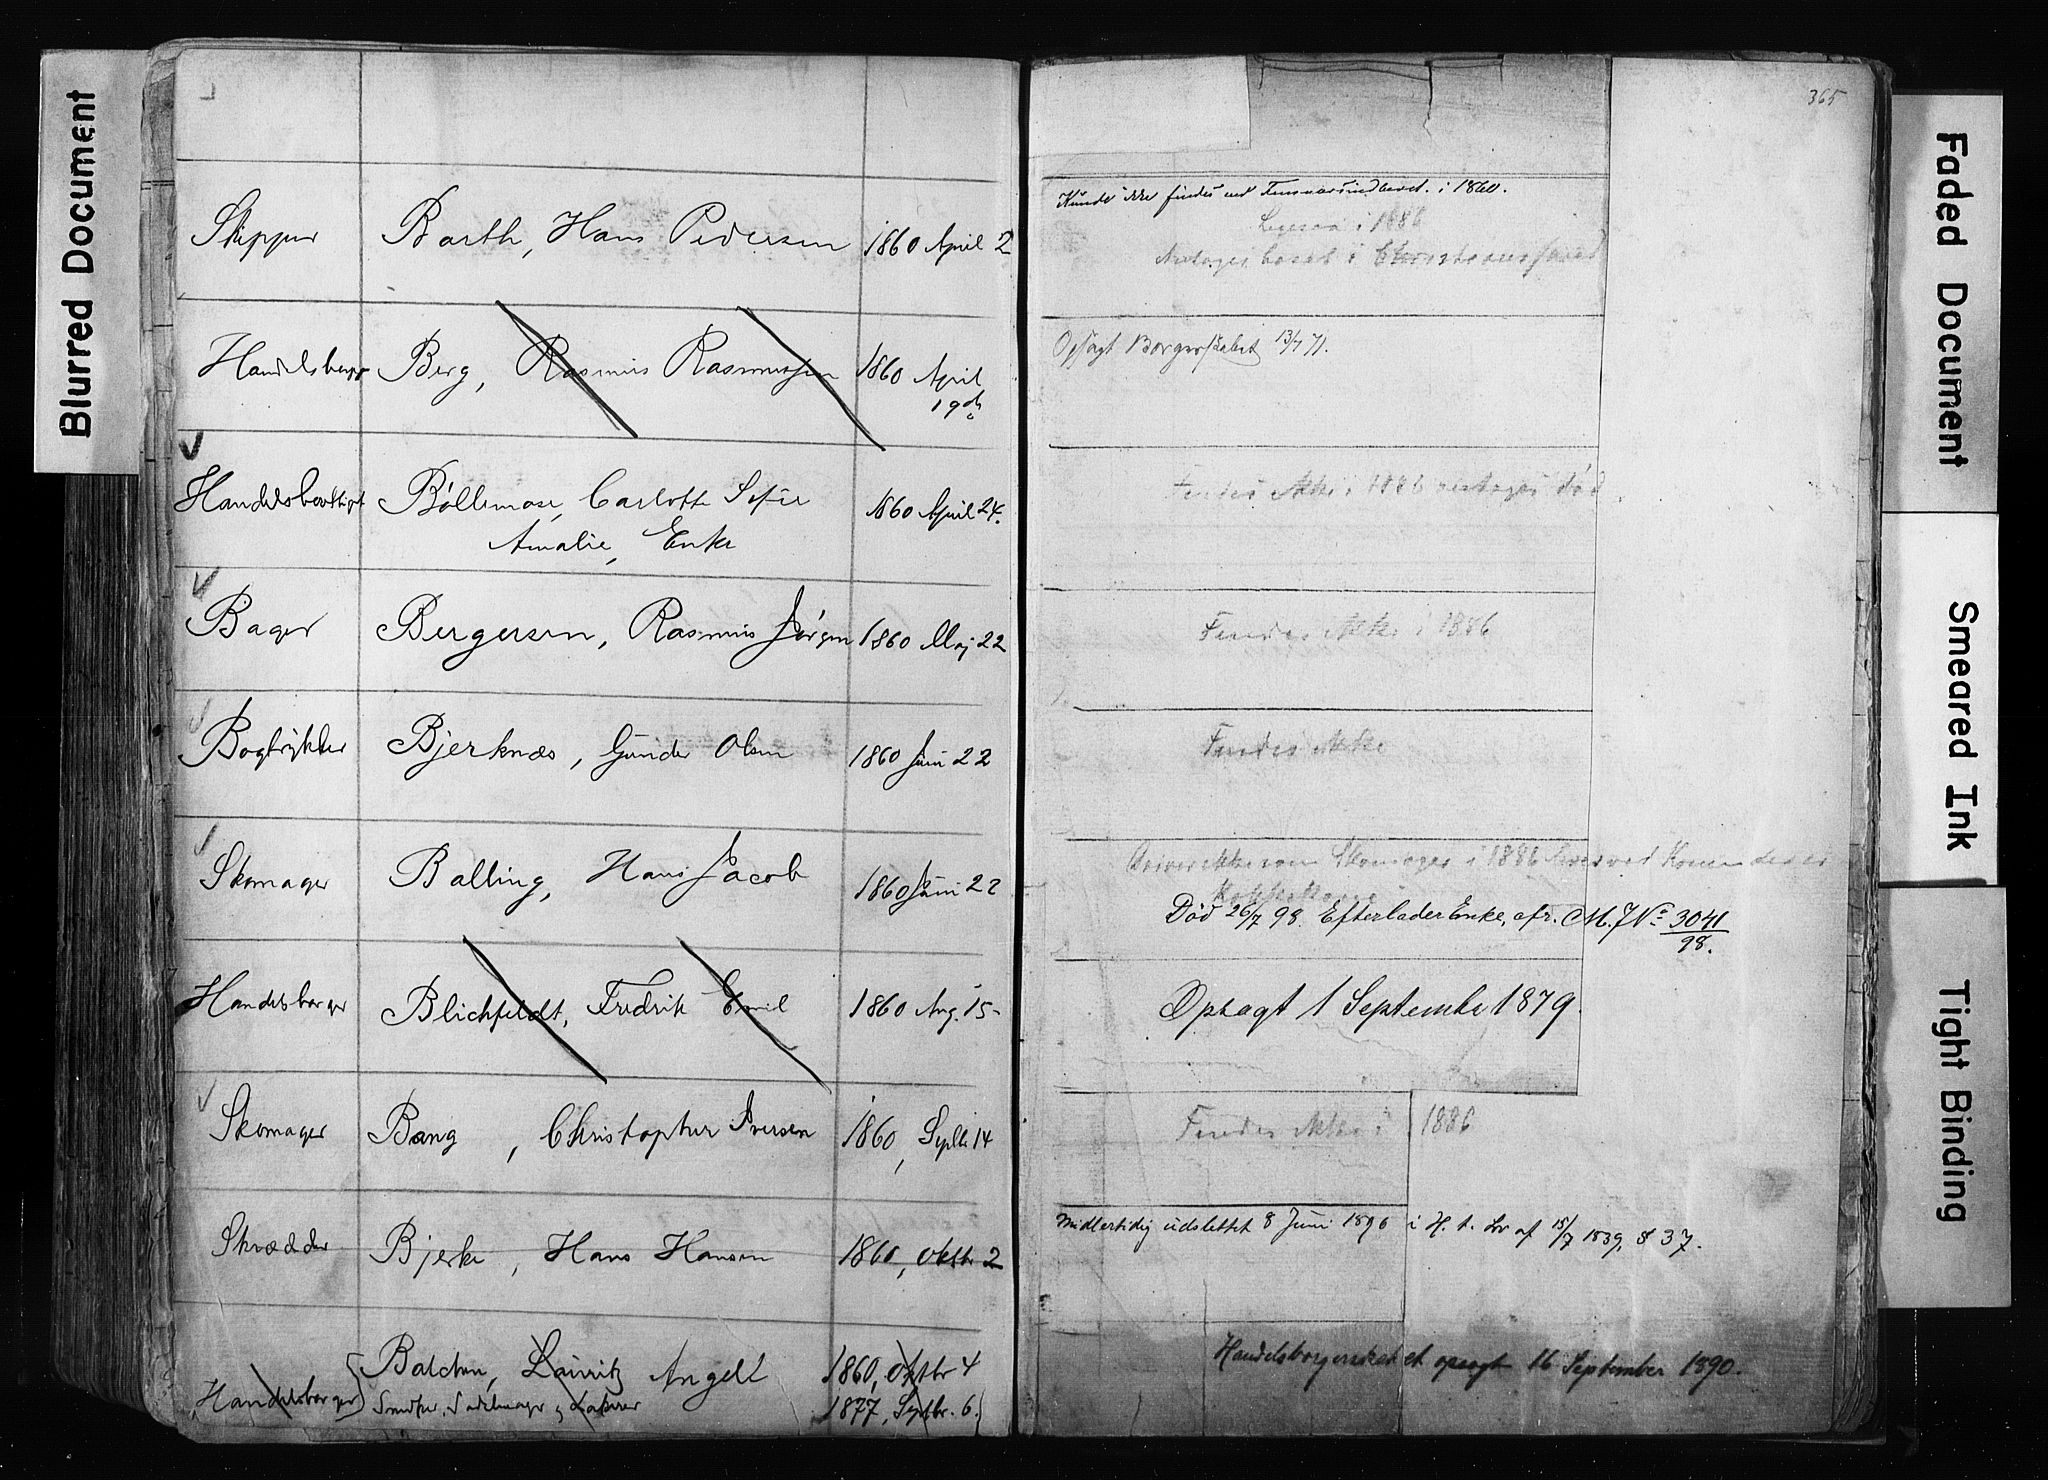 365
Blurred Document
Faded Document
Smeared Ink
Tight Binding
Skipper Barth, Hans Pedersen 1860 April 2
Kunde ikke findes ved i 1860.
i 1886
Antages bosat i Christianssand
Handelsborger Berg, Rasmus Rasmussen 1860 April
19de
Opsagt Borgerskabet 13/7 71.
Handelsberettiget Bøllemose, Carlotte Sofie 1860 April 24.
Amalie, Enke
Findes ikke i 1886 antages død.
Bager Bergersen, Rasmus Jørgen 1860 Maj 22
Findes ikke i 1886
Bogtrykker Bjerknæs, Gunder Olsen 1860 Juni 22
Findes ikke
Skomager Balling, Hans Jacob 1860 Juni 22
Driver ikke som Skomager i 1886 lever ved
Død 26/7 98. Efterlader Enke, cfr. M. J No 3041
98.
Handelsborger Blichfeldt, Fredrik Emil 1860 Aug. 15
Opsagt 1 September 1879.
Skomager Bang, Christopher Iversen 1860, Septb 14
Findes ikke i 1886
Skrædder Bjerke, Hans Hansen 1860, Oktbr 2
Midlertidig udslettet 8 Juni 1896 i H. t. Lov af 15/7 1839, § 37.
Balchen, Lauritz Angell 1860, Oktbr 4
Handelsborger Smedker, Sadelmager og 1877, Septbr. 6.
Handelsborgerskabet opsagt 16 September 1890.